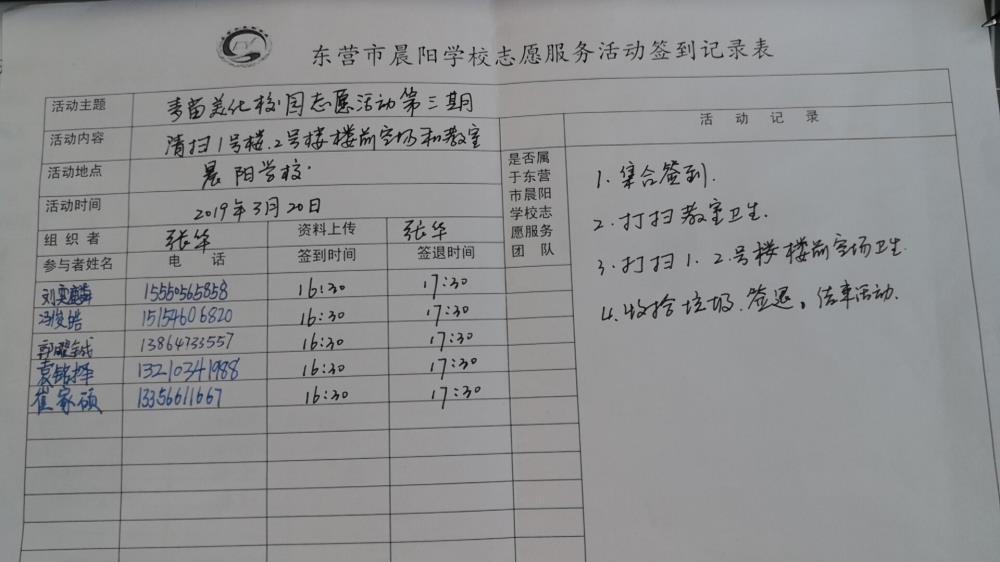 东营市晨阳学校志愿服务活动签到记录表
活动主题 青苗美化校园志愿活动第三期
活动内容 清扫1号楼.2号楼楼前空场和教室
活动地点 晨阳学校.
活动时间 2019年3月20日
组织者 张华 资料上传 张华
参与者姓名 电话 签到时间 签退时间 是否属于东营市晨阳学校志愿服务团队
刘奕麟 15550565858 16:30 17:30
冯俊皓 15154606820 16:30 17:30
郭曜铖 13864733557 16:30 17:30
袁铭择 13210341988 16:30 17:30
崔家硕 13356611667 16:30 17:30
活动记录
1.集合签到.
2.打扫教室卫生.
3.打扫1.2.号楼楼前空场卫生.
4.收拾垃圾.签退。结束活动.